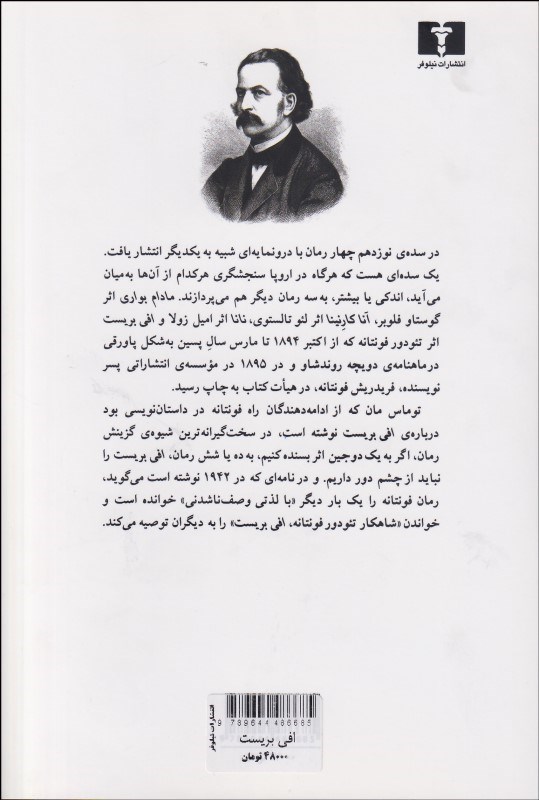 انتشارات نیلوفر
در سده‌ی نوزدهم چهار رمان با درونمایه‌ای شبیه به یکدیگر انتشار یافت.
یک سده‌ای هست که هرگاه در اروپا سنجشگری هرکدام از آن‌ها به‌میان
می‌آید، اندکی یا بیشتر، به سه رمان دیگر هم می‌پردازند. مادام بواری اثر
گوستاو فلوبر، آنا کارِنینا اثر لئو تالستوی، نانا اثر امیل زولا و افی بریست
اثر تئودور فونتانه که از اکتبر ۱۸۹۴ تا مارس سالِ پسین به‌شکل پاورقی
درماهنامه‌ی دویچه روندشاو و در ۱۸۹۵ در مؤسسه‌ی انتشاراتی پسر
نویسنده، فریدریش فونتانه، در هیأت کتاب به چاپ رسید.
توماس مان که از ادامه‌دهندگان راه فونتانه در داستان‌نویسی بود
درباره‌ی افی بریست نوشته است، در سخت‌گیرانه‌ترین شیوه‌ی گزینش
رمان، اگر به یک دوجین اثر بسنده کنیم، به ده یا شش رمان، افی بریست را
نباید از چشم دور داریم. و در نامه‌ای که در ۱۹۴۲ نوشته است می‌گوید،
رمان فونتانه را یک بار دیگر «با لذتی وصف‌ناشدنی» خوانده است و
خواندن «شاهکار تئودور فونتانه، افی بریست» را به دیگران توصیه می‌کند.
انتشارات نیلوفر
9 789644 486685
افی بریست
۴۸۰۰۰ تومان